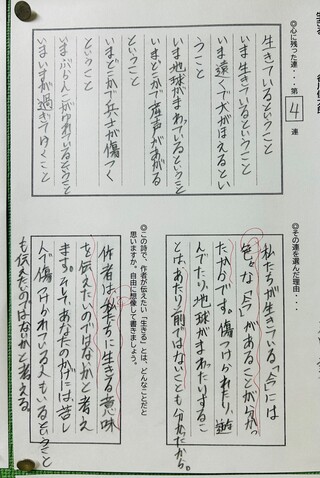 ◎心に残った連・・・第 4 連
生きているということ
いま生きているということ
いま遠くで犬がほえるとい
うこと
いま地球がまわっているということ
いまどこかで産声があがる
ということ
いまどこかで兵士が傷つく
ということ
いまぶらんこがゆれているということ
いまいまが過ぎてゆくこと
◎その連を選んだ理由・・・
私たちが生きている「今」には
色々な「今」があることが分かっ
たからです。傷つけられたり、遊
んでたり、地球がまわたいするこ
とは、あたり前ではないことも分かったから。
◎この詩で、作者が伝えたい「生きる」とは、どんなことだと
思いますか。自由に想像して書きましょう。
作者は、私たちに生きる意味
を伝えたいのではないかと考え
ます。そして、あなたのかげには、苦し
んで傷つけられている人もいるということ
も伝えたいのではないかと考える。